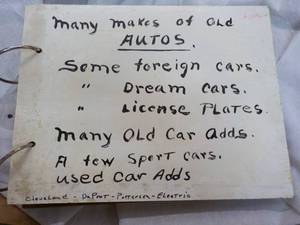 many makes of old
AUTOS.
Some foreign cars.
" Dream cars.
" License Plates.
many old car Adds.
A few sport cars.
used car Adds
Cleveland - DuPont - - Electric